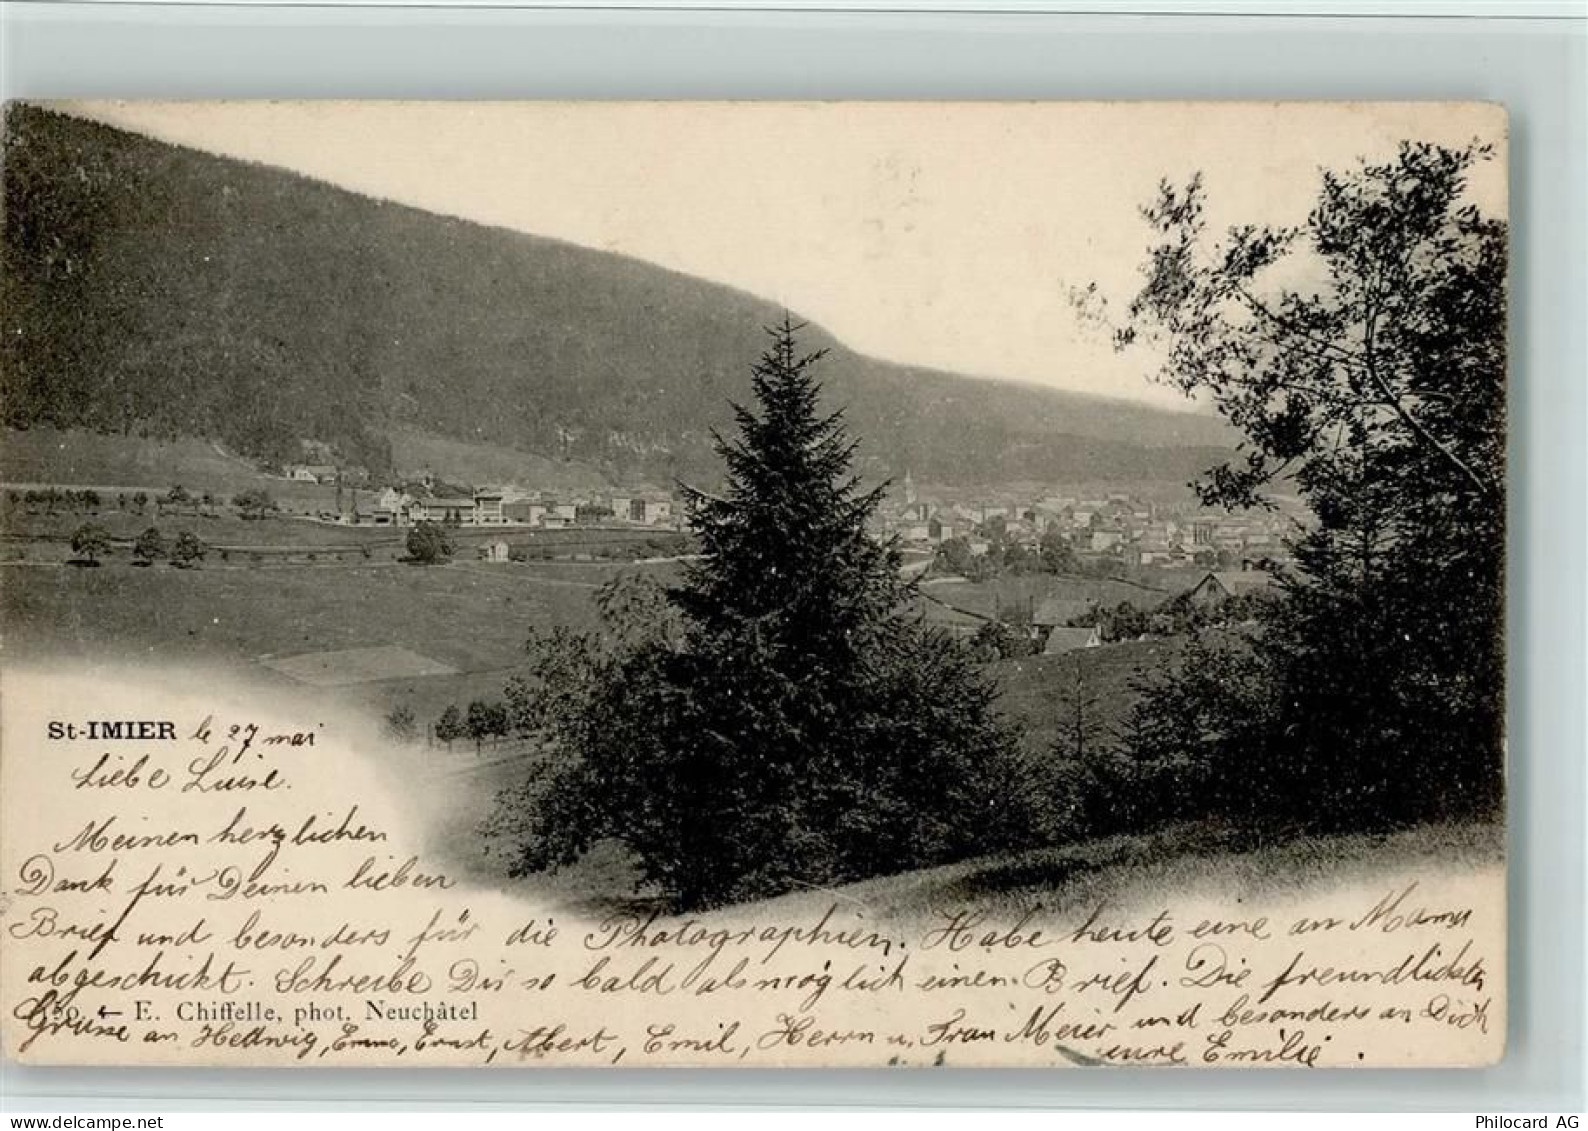 St-IMIER le 27 mai
Liebe Luise.
Meinen herzlichen
Dank für Deinen lieben
Brief und besonders für die Photographien. Habe heute eine an Mama
abgeschickt. Schreibe Dir so bald als möglich einen Brief. Die freundlichsten
750. E. Chiffelle, phot. Neuchâtel
Grüsse an Hedwig, Emma, Ernst, Albert, Emil, Herrn u. Frau Meier und besonders an Dich
eure Emilie.
delcampe.net
Philocard AG